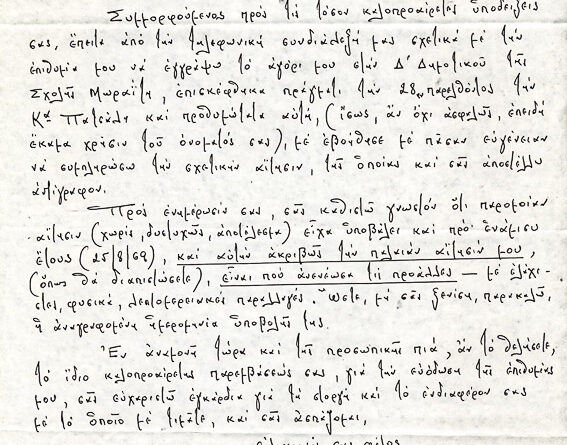 Συμμορφούμενος πρὸς τὶς τόσον καλοπροαίρετες ὑποδείξεις
σας, ἔπειτα ἀπὸ τὴν τηλεφωνικὴ συνδιάλεξή μας σχετικὰ μὲ τὴν
ἐπιθυμία μου νὰ ἐγγράψω τὸ ἀγόρι μου στὴν Δ' Δημοτικοῦ τῆς
Σχολῆς Μωραΐτη, ἐπισκέφθηκα πράγματι τὴν 28η παρελθόντος τὴν
Κα Πατεάλη καὶ προθυμότατα αὐτή, (ἴσως, ἂν ὄχι ἀσφαλῶς, ἐπειδὴ
ἔκαμα χρῆσιν τοῦ ὀνόματός σας), μὲ ἐβοήθησε μὲ πᾶσαν εὐγένειαν
νὰ συμπληρώσω τὴν σχετικὴν αἴτησιν, τῆς ὁποίας καὶ σᾶς ἀποστέλλω
ἀντίγραφον.
Πρὸς ἐνημέρωσίν σας, σᾶς καθιστῶ γνωστὸν ὅτι παρομοίαν
αἴτησιν (χωρίς, δυστυχῶς, ἀποτέλεσμα) εἶχα ὑποβάλει καὶ πρὸ ἑνάμισυ
ἔτους (25/8/69), καὶ αὐτὴν ἀκριβῶς τὴν παλιὰν αἴτησίν μου,
(ὅπως θὰ διαπιστώσετε), εἶναι ποὺ ἀνενέωσα τὶς προάλλες — μὲ ἐλάχι-
στες, φυσικά, λεπτομερειακὲς παραλλαγές. Ὥστε, μὴ σᾶς ξενίση, παρακαλῶ,
ἡ ἀναγραφομένη ἡμερομηνία ὑποβολῆς της.
Ἐν ἀναμονῇ τώρα καὶ τῆς προσωπικῆς πιά, ἂν τὸ θελήσετε,
τὸ ἴδιο καλοπροαίρετης παρεμβάσεώς σας, γιὰ τὴν εὐόδωση τῆς ἐπιθυμίας
μου, σᾶς εὐχαριστῶ ἐγκάρδια γιὰ τὴ στοργὴ καὶ τὸ ἐνδιαφέρον σας
μὲ τὸ ὁποῖο μὲ τιμᾶτε, καὶ σᾶς ἀσπάζομαι,